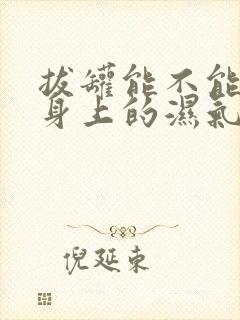 拔罐能不能
身上的濕氣
倪延東